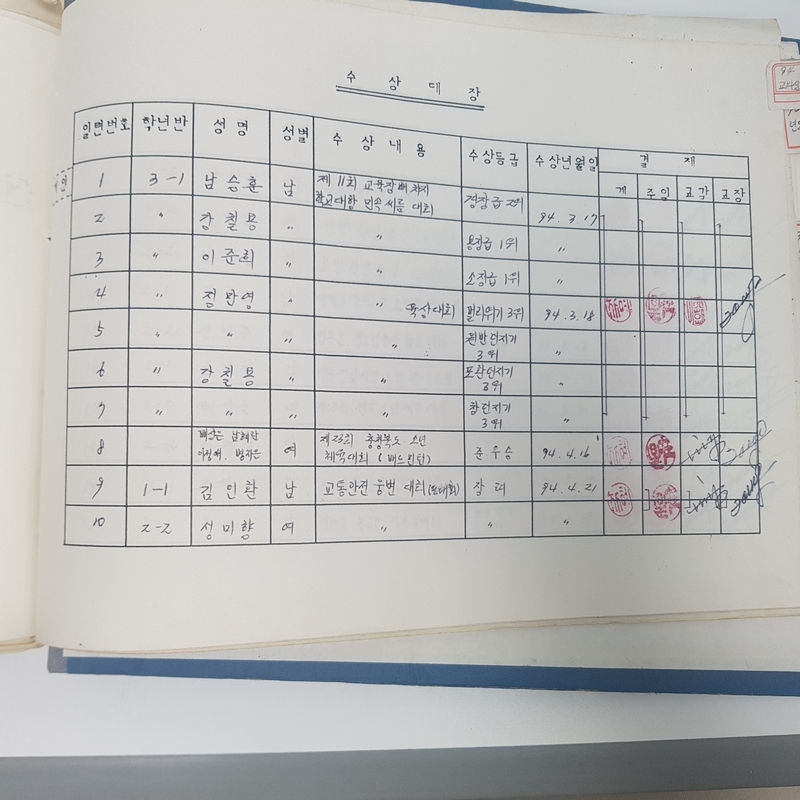 수 상 대 장
일련번호 학년반 성 명 성별 수 상 내 용 수상등급 수상년월일 결 재
계 주임 교감 교장
1 3-1 남승훈 남 제 11회 교육장배 차지
학교대항 민속씨름 대회 2위
2 〃 강철용 〃 〃 용장급 1위 94. 3. 17
3 〃 이준희 〃 〃 소장급 1위 〃
4 〃 정만영 〃 〃 육상대회 멀리뛰기 3위 94. 3. 18
5 〃 〃 〃 〃 원반던지기
3위 〃
6 〃 강철용 〃 〃 포환던지기
3위 〃
7 〃 〃 〃 〃 창던지기
3위 〃
8 여 제23회 충청북도 소년
체육대회 (배드민턴) 준우승 94. 4. 16
9 1-1 김인환 남 교통안전 웅변 대회 장려 94. 4. 21
10 2-2 성미향 여 〃 〃 〃
94